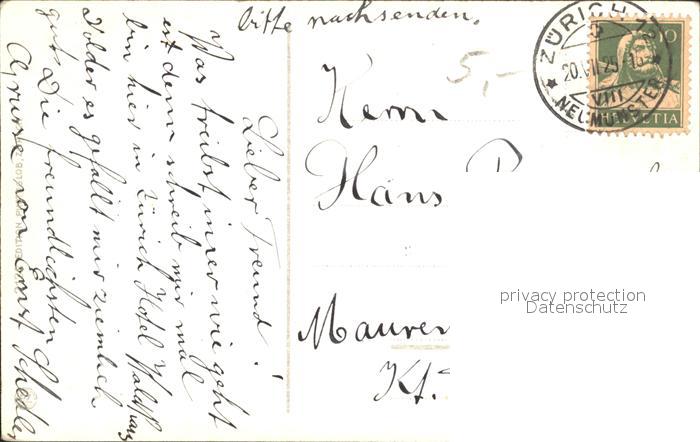 bitte nachsenden.
5,-
ZÜRICH 12
20.VII.25
VIII
NEUMÜNSTER
10
HELVETIA
Herrn
Hans
Maurer
Kt.
privacy protection
Datenschutz
Lieber Freund!
Was treibst immer wie geht
es denn schreib mir mal
bin hier in Zürich Hotel Waldhaus
Dolder es gefällt mir ziemlich
gut. Die freundlichsten
Grüsse von Ernst